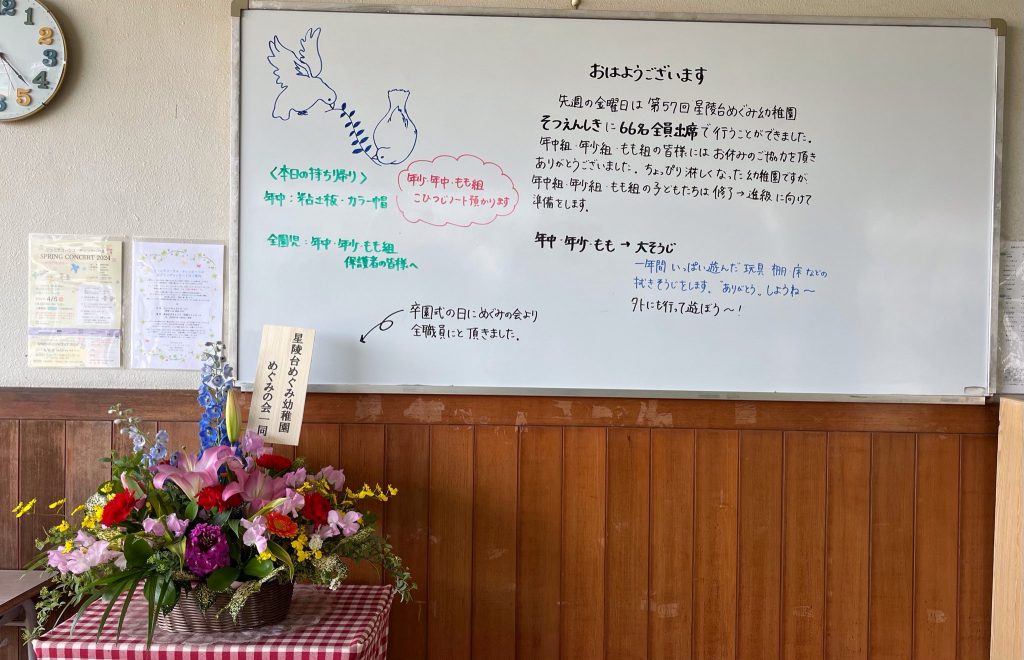 おはようございます
先週の金曜日は第57回星陵台めぐみ幼稚園
そつえんしきに66名全員出席で行うことができました。
年中組・年少組・もも組の皆様にはお休みのご協力を頂き
ありがとうございました。ちょっぴり淋しくなった幼稚園ですが、
年中組・年少組・もも組の子どもたちは修了→進級に向けて
準備をします。
〈本日の持ち帰り〉
年中：粘土板・カラー帽
年少・年中・もも組
こひつじノート預かります
全園児：年中・年少・もも組
保護者の皆様へ
年中・年少・もも → 大そうじ
一年間いっぱい遊んだ玩具 棚 床などの
拭きそうじをします。"ありがとう"しようね〜
外にも行って遊ぼう〜!
卒園式の日にめぐみの会より
全職員にと頂きました。
星陵台めぐみ幼稚園
めぐみの会一同
SPRING CONCERT 2024
1
2
3
4
5